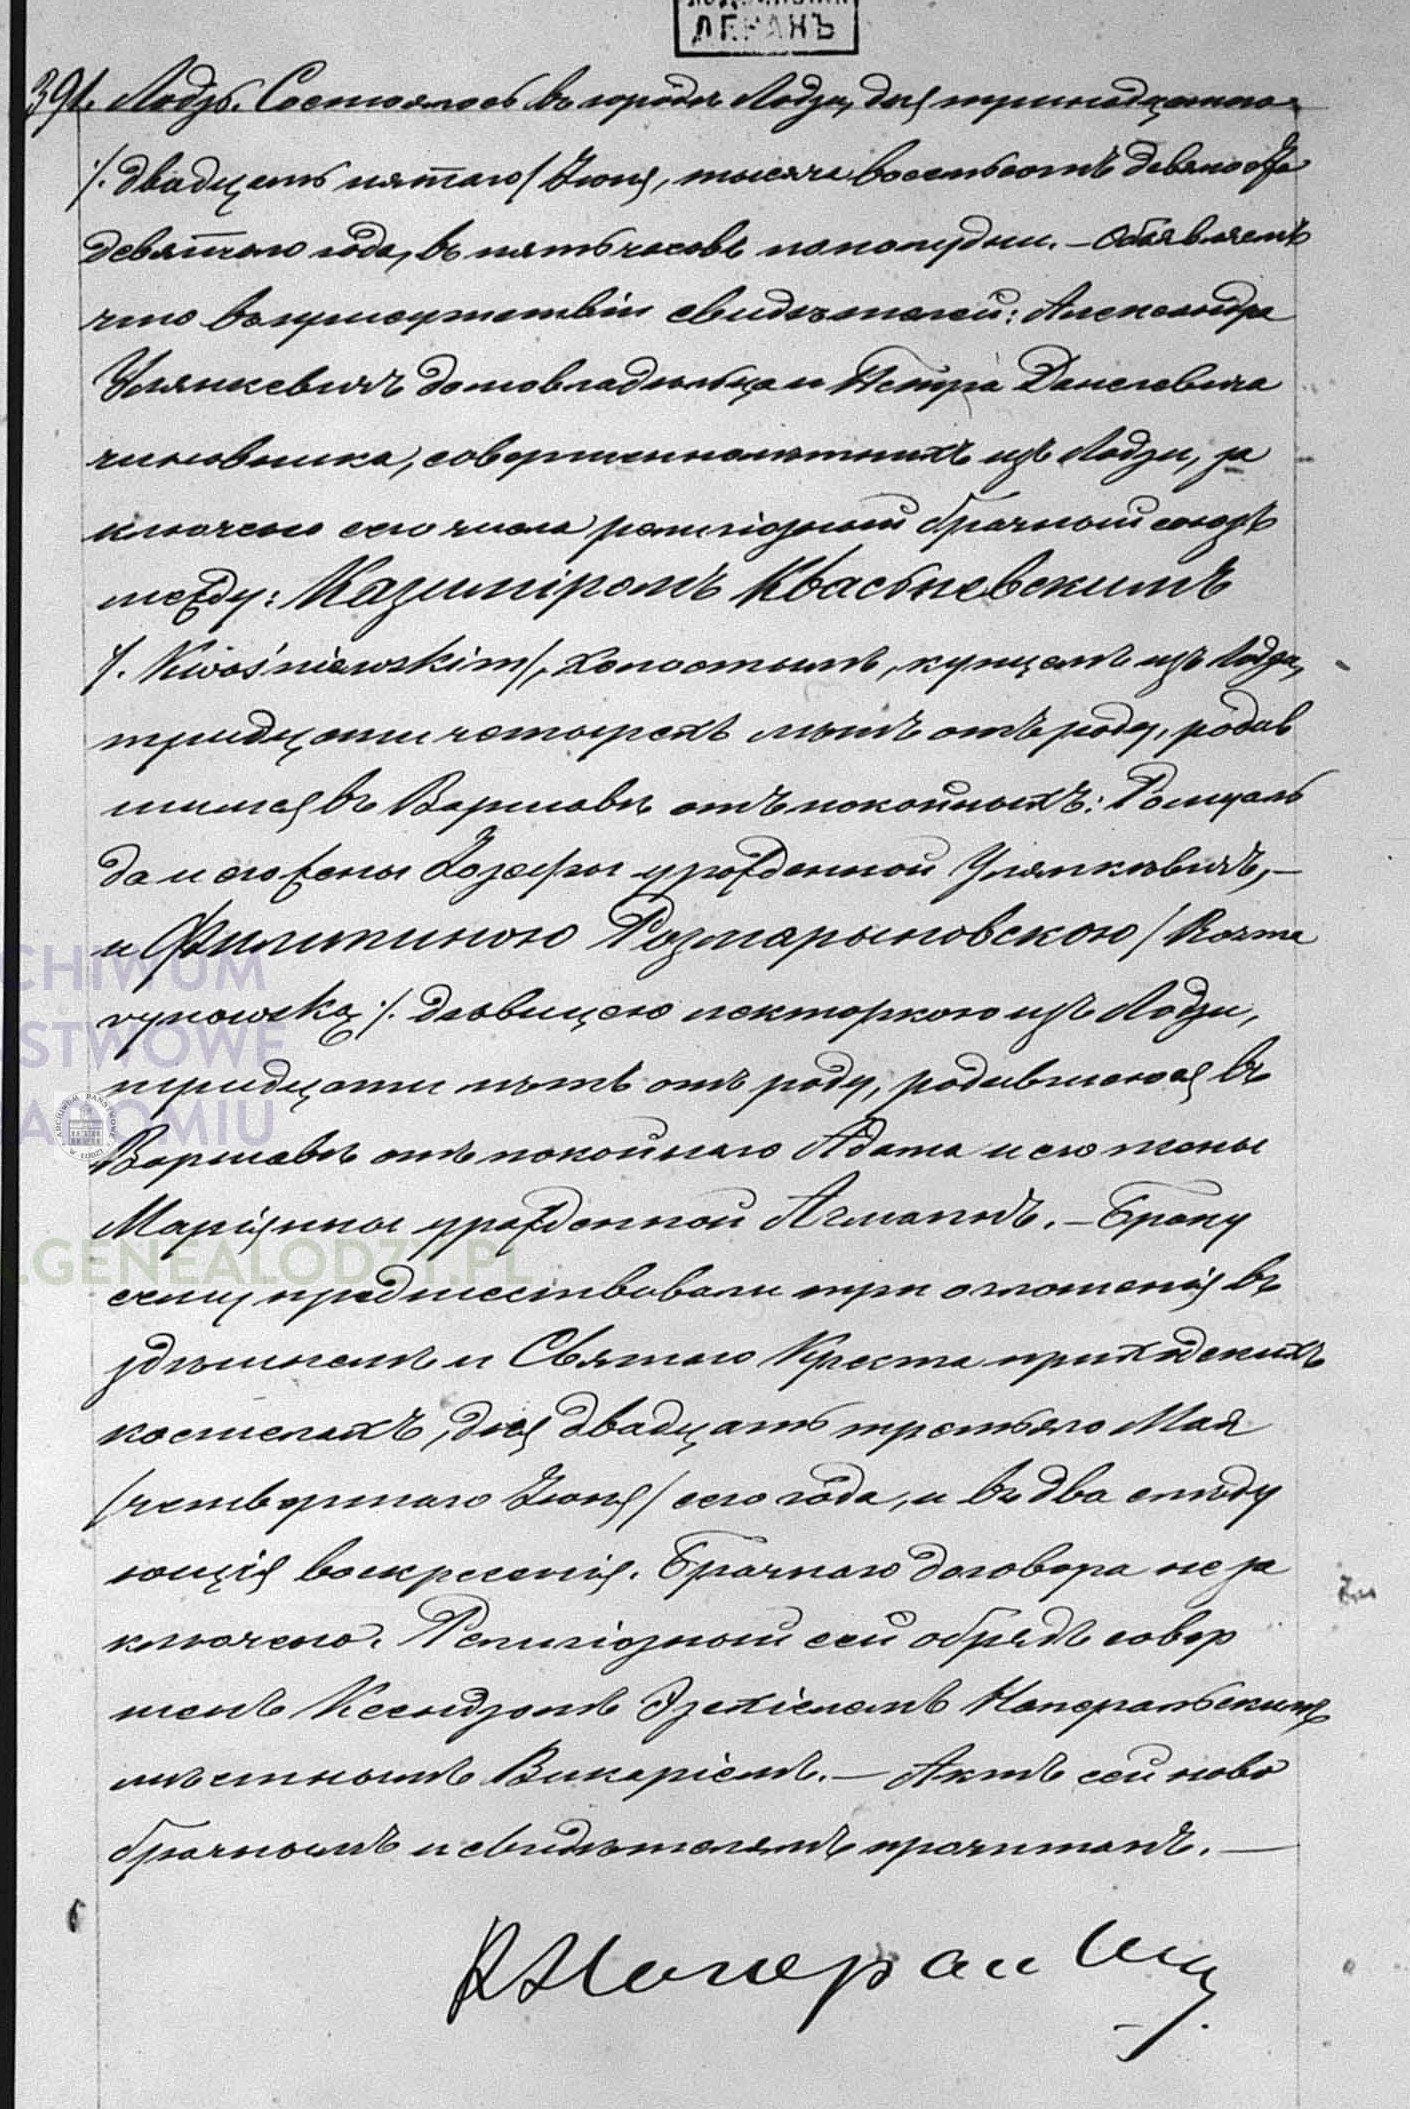 ДЕКАНЪ
391. Лодзь. Состоялось въ городѣ Лодзи, дня тринадцатаго
/. двадцать пятаго / Іюня, тысяча восемьсотъ девяносто
девятаго года, въ пять часовъ пополудни. – Объявляемъ
что въ присутствіи свидѣтелей: Александра
Улянкевичъ домовладѣльца и Петра Данелевича
чиновника, совершеннолѣтнихъ изъ Лодзи, за
ключенъ сего числа религіозный брачный союзъ
между: Казиміромъ Квасьневскимъ
/. Kwaśniewskim /, холостымъ, купцемъ изъ Лодзи,
тридцати четырехъ лѣтъ отъ роду, родив
шимся въ Варшавѣ отъ покойныхъ: Ромуаль
да и его жены Іозефы урожденной Улянкевичъ, –
и Филипиною Розмарыновскою / Rozma
rynowską /. дѣвицею лекторкою изъ Лодзи,
тридцати лѣтъ отъ роду, родившеюся въ
Варшавѣ отъ покойнаго Адама и его жены
Маріянны урожденной Ахманъ. – Браку
сему предшествовали три оглашенія въ
здѣшнемъ и Святаго Креста приходскихъ
костелахъ, дня двадцать третьяго Мая
/ четвертаго Іюня / сего года, и въ два слѣду
ющія воскресенія. Брачнаго договора не за
ключено. Религіозный сей обрядъ совер
шенъ Ксендзомъ Эзехіелемъ Наперальскимъ
мѣстнымъ Викаріемъ. – Актъ сей ново
брачнымъ и свидѣтелямъ прочитанъ. –
ARCHIWUM PAŃSTWOWE W ŁODZI
.GENEALODZY.PL